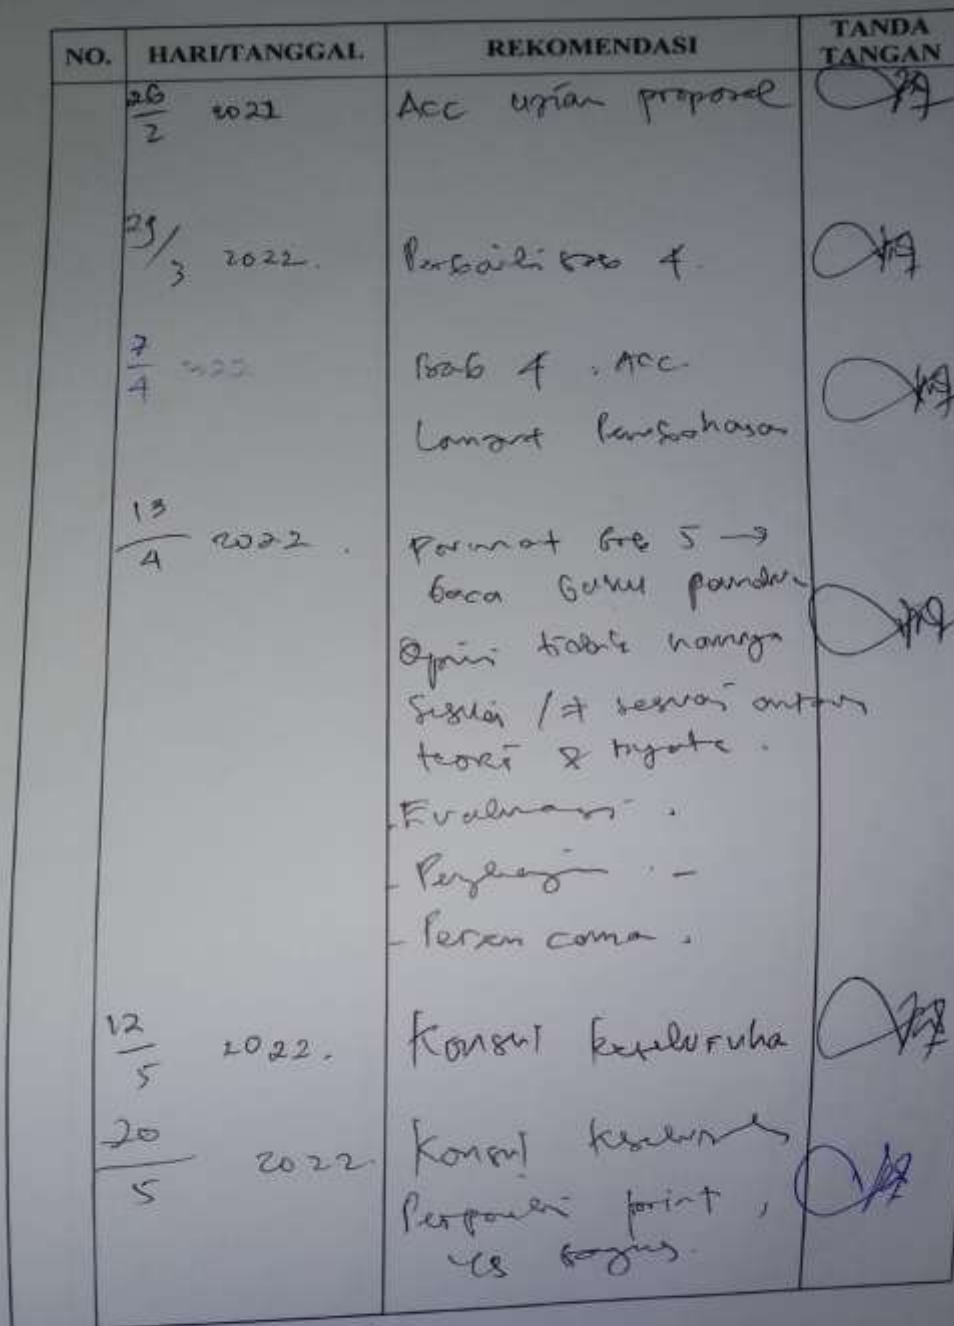 NO. HARI/TANGGAL REKOMENDASI TANDA TANGAN
26/2 2021 Acc ujian proposal
29/3 2022. Perbaiki bab 4.
7/4 2022 Bab 4. ACC.
Lanjut Pembahasan
13/4 2022. Format bab 5 →
baca buku pandu
Opini tidak hanya
sesuai / ≠ sesuai antara
teori & nyata.
- Evaluasi.
- Pengkajian. -
- Peran coma.
12/5 2022. Konsul keseluruha
20/5 2022 Konsul
Perbaiki print,
yg bagus.